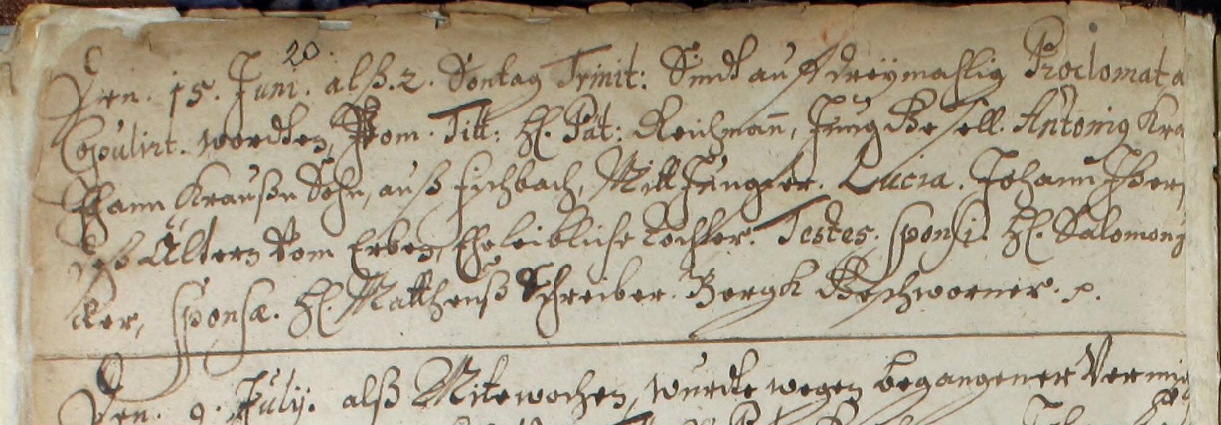 20.
Den. 15. Juni. alß. 2. Sontag Trinit: Sindt auff dreymahlig Proclomata
Copulirt. wordten, Vom. Titt: H. Pat: Reichmañ, Jung Gesell. Antonig Kra
Hann Kraußn Sohn, auß Eschbach, Mitt Jungfer. Lucia. Johann
deß Ältern Vom Erben, Eheleibliche Tochter. Testes. sponsi. H. Salomong
ker, sponsæ. H. Mattheuß Schreiber. Bergk Geschworner. p.
Den. 9. Julij. alß Mitewochen, wurdte wegen begangener